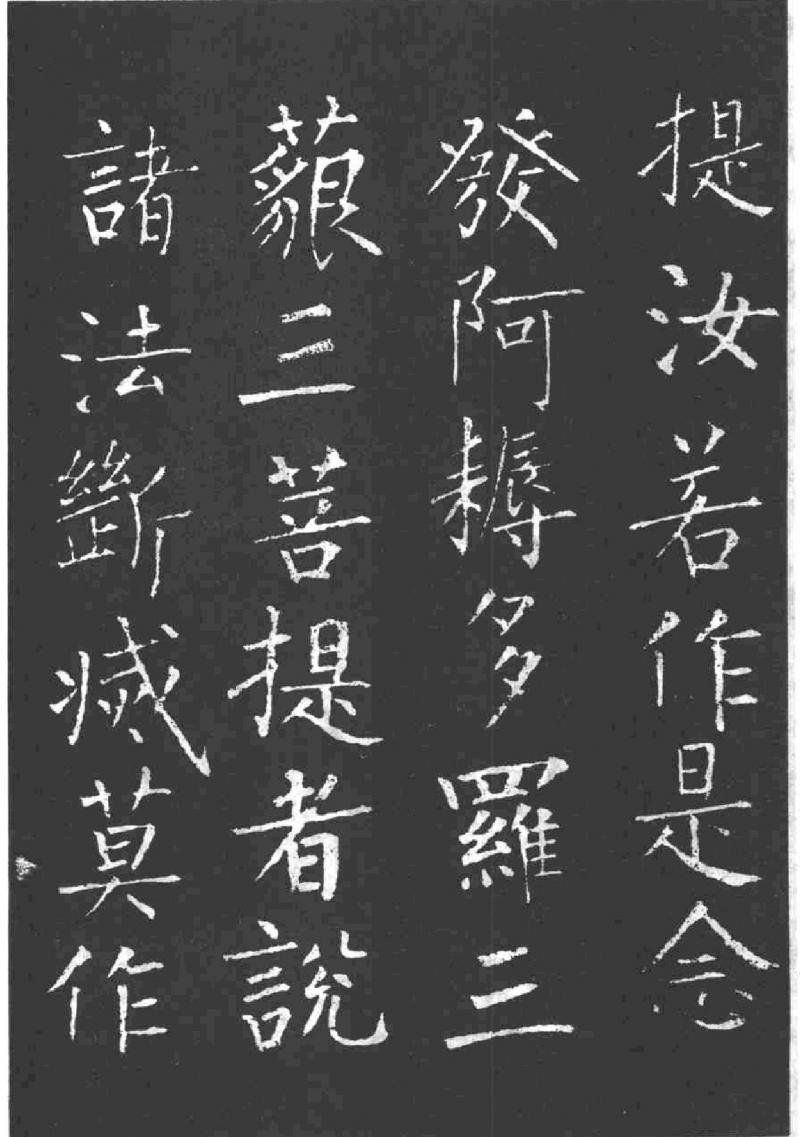 提汝若作是念
發阿耨多羅三
藐三菩提者說
諸法斷滅莫作